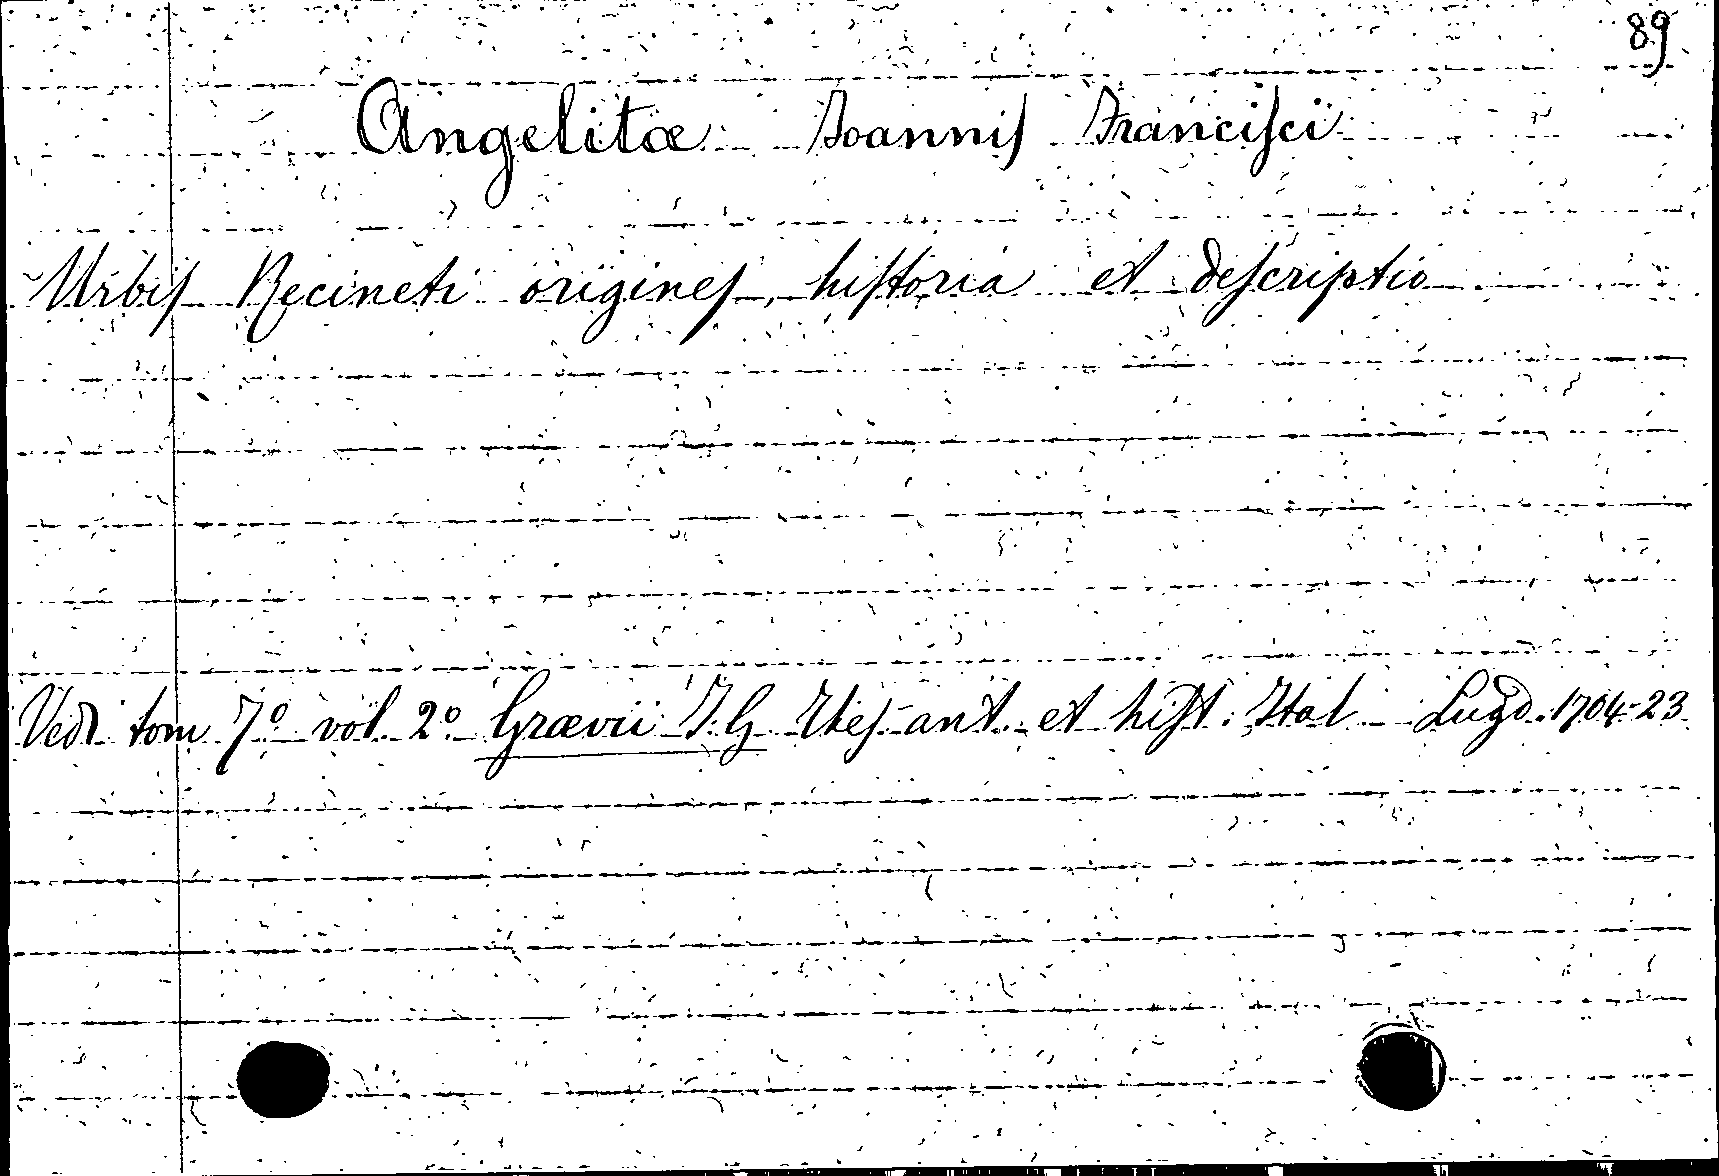 89
Angelitæ Joannis Francisci
Urbis Recineti origines, historia et descriptio
Vedi tom 7º vol. 2º Grævii J. G. Thes. ant. et hist. Ital. Lugd. 1704-23